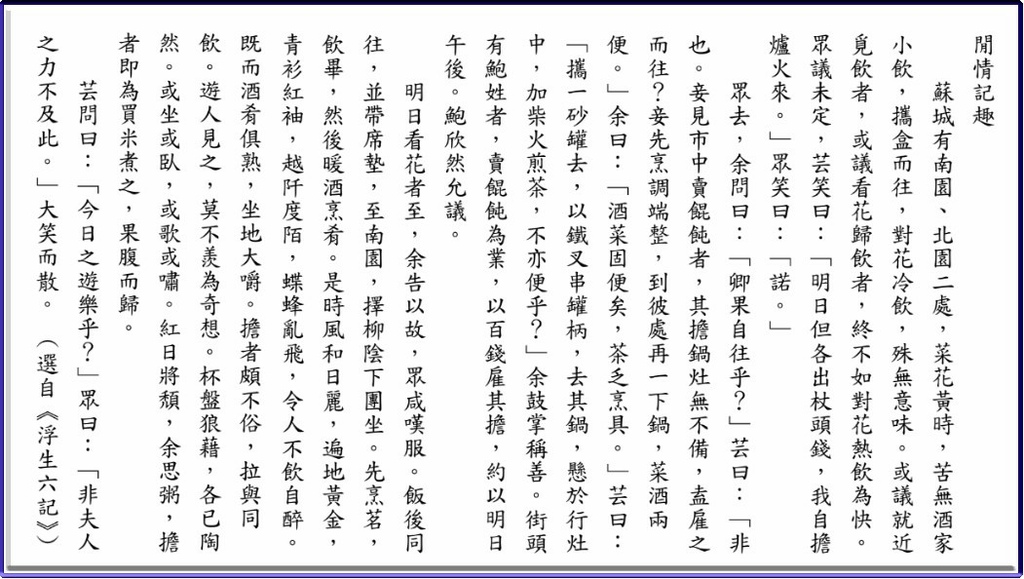 閒情記趣
蘇城有南園、北園二處，菜花黃時，苦無酒家
小飲，攜盒而往，對花冷飲，殊無意味。或議就近
覓飲者，或議看花歸飲者，終不如對花熱飲為快。
眾議未定，芸笑曰：「明日但各出杖頭錢，我自擔
爐火來。」眾笑曰：「諾。」
眾去，余問曰：「卿果自往乎？」芸曰：「非
也。妾見市中賣餛飩者，其擔鍋灶無不備，盍雇之
而往？妾先烹調端整，到彼處再一下鍋，菜酒兩
便。」余曰：「酒菜固便矣，茶乏烹具。」芸曰：
「攜一砂罐去，以鐵叉串罐柄，去其鍋，懸於行灶
中，加柴火煎茶，不亦便乎？」余鼓掌稱善。街頭
有鮑姓者，賣餛飩為業，以百錢雇其擔，約以明日
午後。鮑欣然允議。
明日看花者至，余告以故，眾咸嘆服。飯後同
往，並帶席墊，至南園，擇柳陰下團坐。先烹茗，
飲畢，然後暖酒烹肴。是時風和日麗，遍地黃金，
青衫紅袖，越阡度陌，蝶蜂亂飛，令人不飲自醉。
既而酒肴俱熟，坐地大嚼。擔者頗不俗，拉與同
飲。遊人見之，莫不羨為奇想。杯盤狼藉，各已陶
然。或坐或臥，或歌或嘯。紅日將頹，余思粥，擔
者即為買米煮之，果腹而歸。
芸問曰：「今日之遊樂乎？」眾曰：「非夫人
之力不及此。」大笑而散。（選自《浮生六記》）